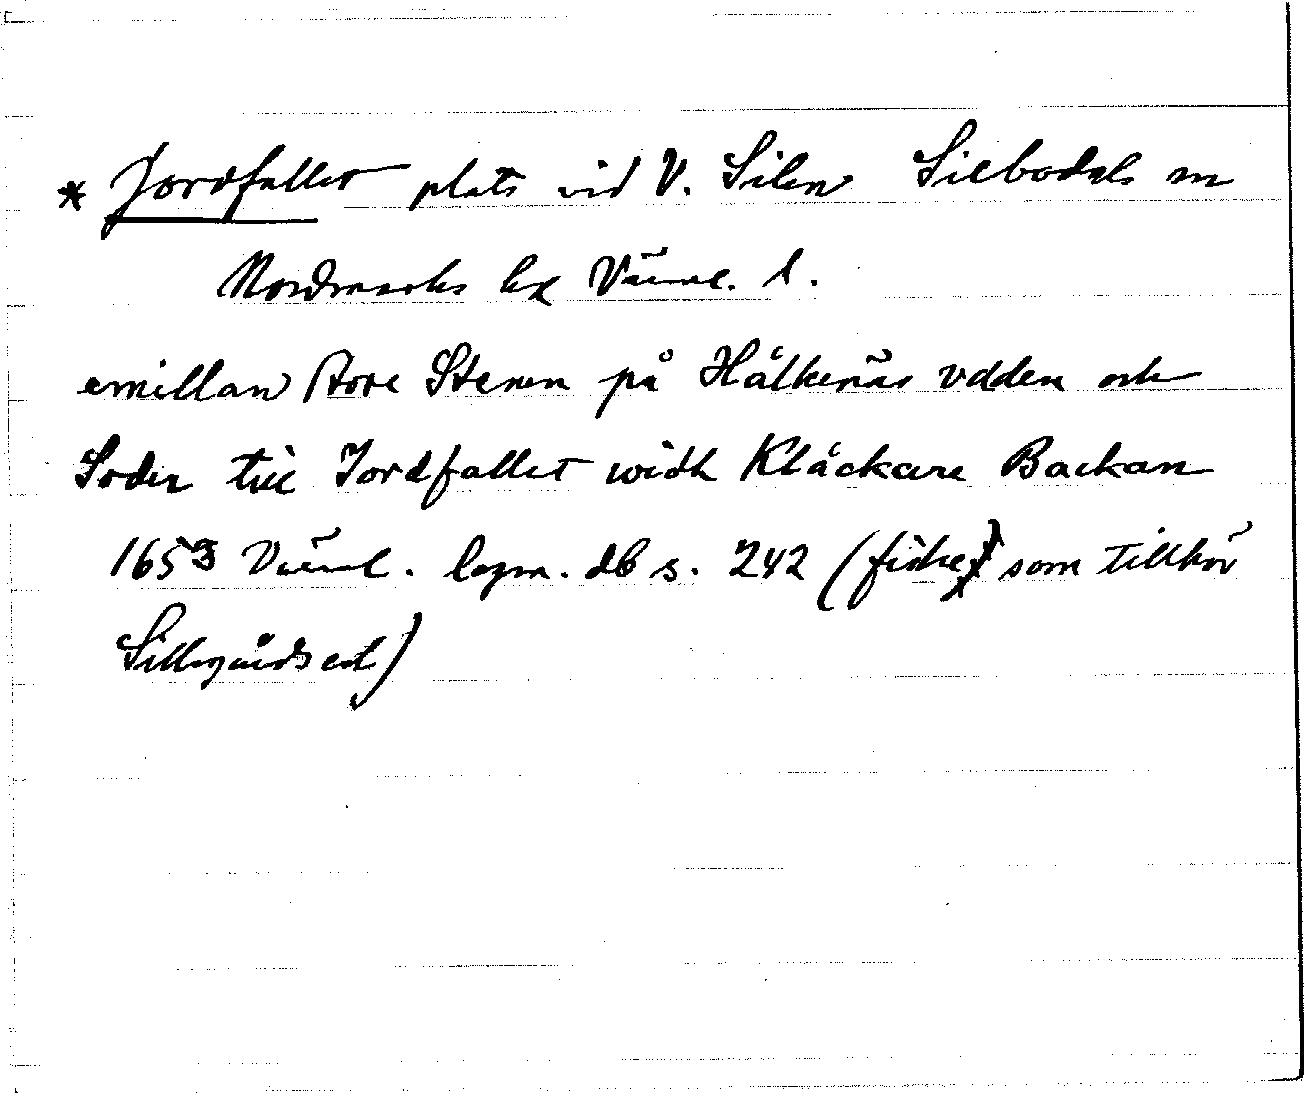 * Jordfallet plats vid V. Silen Silbodals sn
Nordmarks hd Värml. l.
emillan store Stenen på Hålkenäs vdden och
Soder till Jordfallet widh Klåckare Backan
1653 Värml. lagm. db s. 242 (fiske som tillhör
Sillegårdsed)